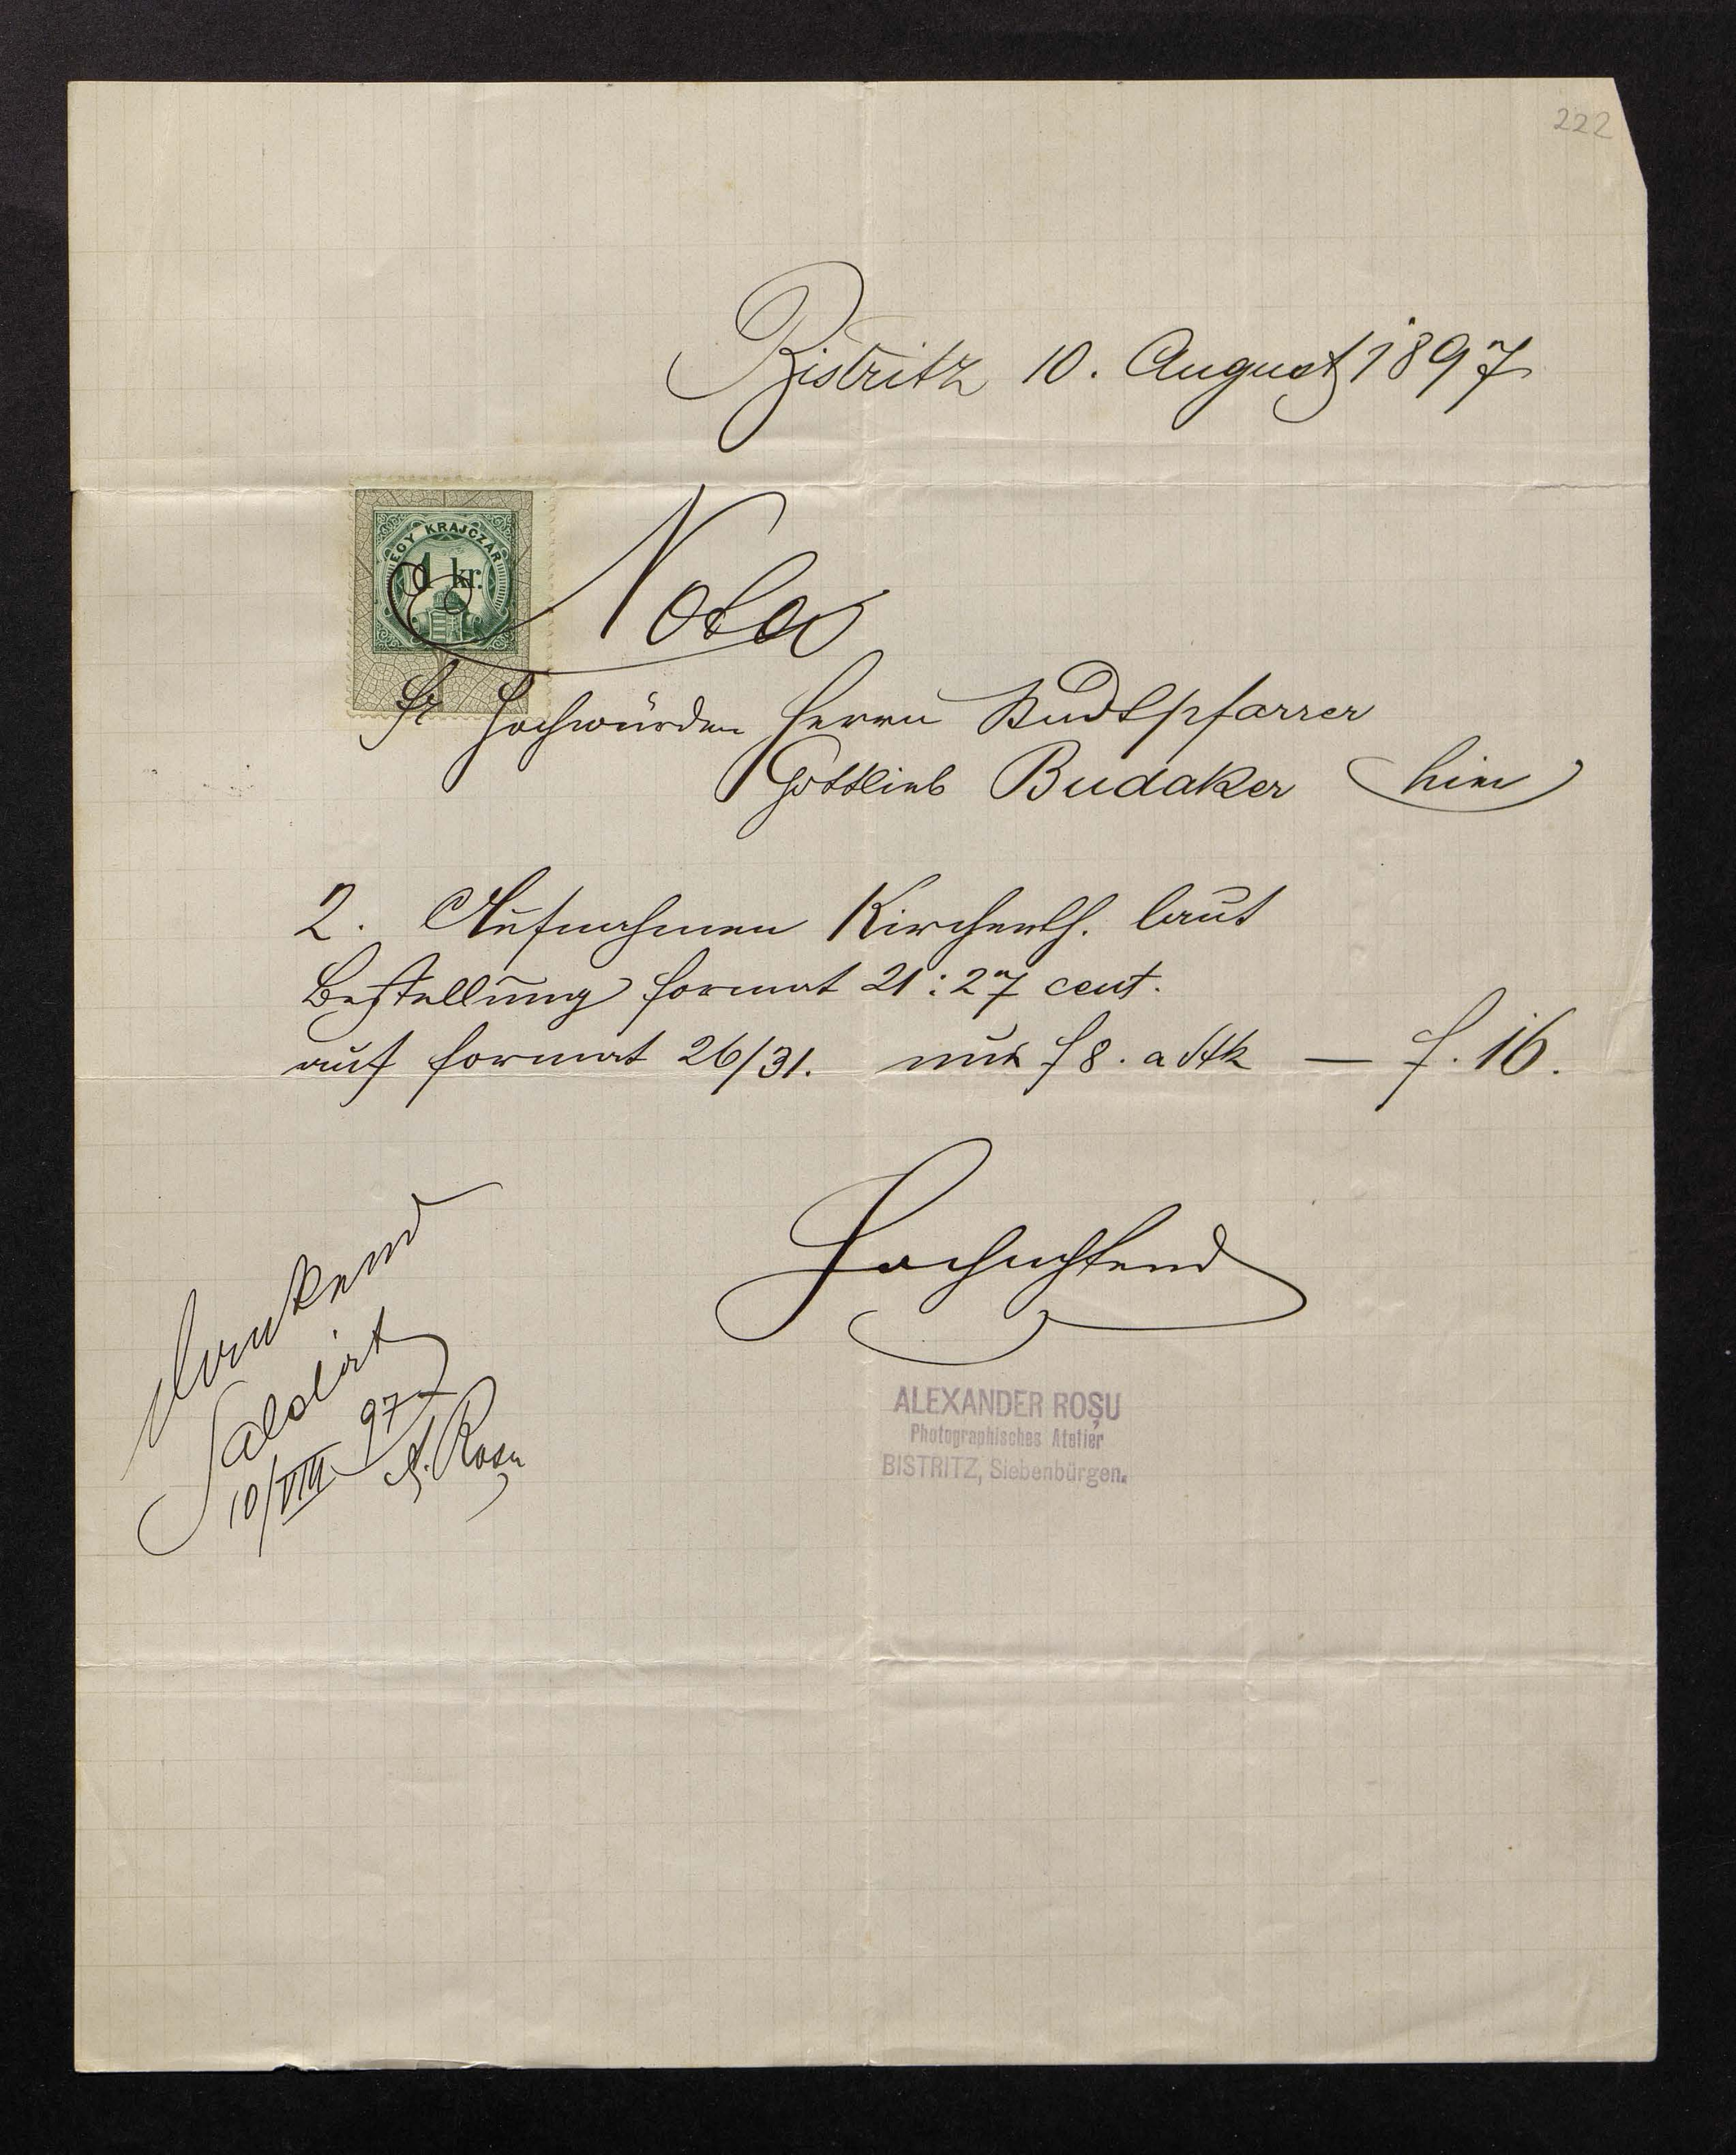 222
Bistritz 10. August 1897
EGY KRAJCZÁR
1 kr.
Nota
Sr Hochwürden Herrn Stadtpfarrer
Gottlieb Budaker hier
2. Aufnahmen Kirchenth. laut
Bestellung format 21:27 cent.
auf format 26/31. nur f 8. a Stk — f. 16.
Hochachtend
dankend
Saldirt
10/VIII 97
A. Rosu
ALEXANDER ROȘU
Photographisches Atelier
BISTRITZ, Siebenbürgen.